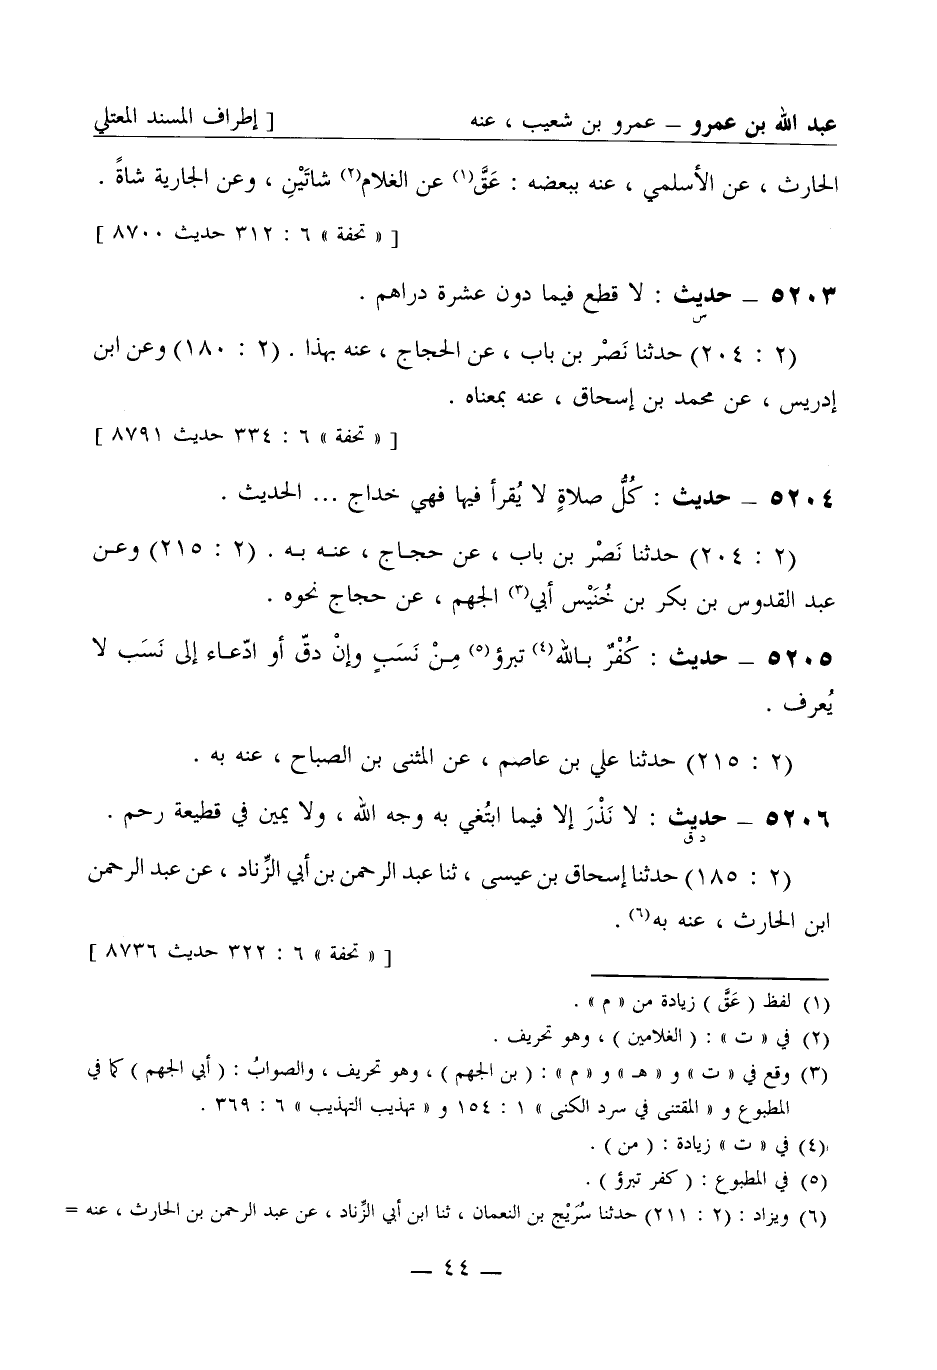 عبد الله بن عمرو – عمرو بن شعيب ، عنه [ إطراف المسند المعتلي
الحارث ، عن الأسلمي ، عنه ببعضه : عَقَّ(١) عن الغلام(٢) شاتَيْنِ ، وعن الجارية شاةً .
[ « تحفة » ٦ : ٣١٢ حديث ٨٧٠٠ ]
٥٢٠٣ – حديث : لا قطع فيما دون عشرة دراهم .
س
(٢ : ٢٠٤) حدثنا نَصْر بن باب ، عن الحجاج ، عنه بهذا . (٢ : ١٨٠) وعن ابن
إدريس ، عن محمد بن إسحاق ، عنه بمعناه .
[ « تحفة » ٦ : ٣٣٤ حديث ٨٧٩١ ]
٥٢٠٤ – حديث : كُلُّ صلاةٍ لا يُقرأ فيها فهي خداج ... الحديث .
(٢ : ٢٠٤) حدثنا نَصْر بن باب ، عن حجاج ، عنه به . (٢ : ٢١٥) وعن
عبد القدوس بن بكر بن خُنَيْس أبي(٣) الجهم ، عن حجاج نحوه .
٥٢٠٥ – حديث : كُفْرٌ بالله(٤) تبرؤ(٥) مِنْ نَسَبٍ وإنْ دقّ أو ادّعاء إلى نَسَب لا
يُعرف .
(٢ : ٢١٥) حدثنا علي بن عاصم ، عن المثنى بن الصباح ، عنه به .
٥٢٠٦ – حديث : لا نَذْرَ إلا فيما ابتُغي به وجه الله ، ولا يمين في قطيعة رحم .
د ق
(٢ : ١٨٥) حدثنا إسحاق بن عيسى ، ثنا عبد الرحمن بن أبي الزِّناد ، عن عبد الرحمن
ابن الحارث ، عنه به(٦) .
[ « تحفة » ٦ : ٣٢٢ حديث ٨٧٣٦ ]
(١) لفظ ( عَقَّ ) زيادة من « م » .
(٢) في « ت » : ( الغلامين ) ، وهو تحريف .
(٣) وقع في « ت » و « هـ » و « م » : ( بن الجهم ) ، وهو تحريف ، والصوابُ : ( أبي الجهم ) كما في
المطبوع و « المقتنى في سرد الكنى » ١ : ١٥٤ و « تهذيب التهذيب » ٦ : ٣٦٩ .
(٤) في « ت » زيادة : ( من ) .
(٥) في المطبوع : ( كفر تبرؤ ) .
(٦) ويزاد : (٢ : ٢١١) حدثنا سُرَيْج بن النعمان ، ثنا ابن أبي الزِّناد ، عن عبد الرحمن بن الحارث ، عنه =
– ٤٤ –